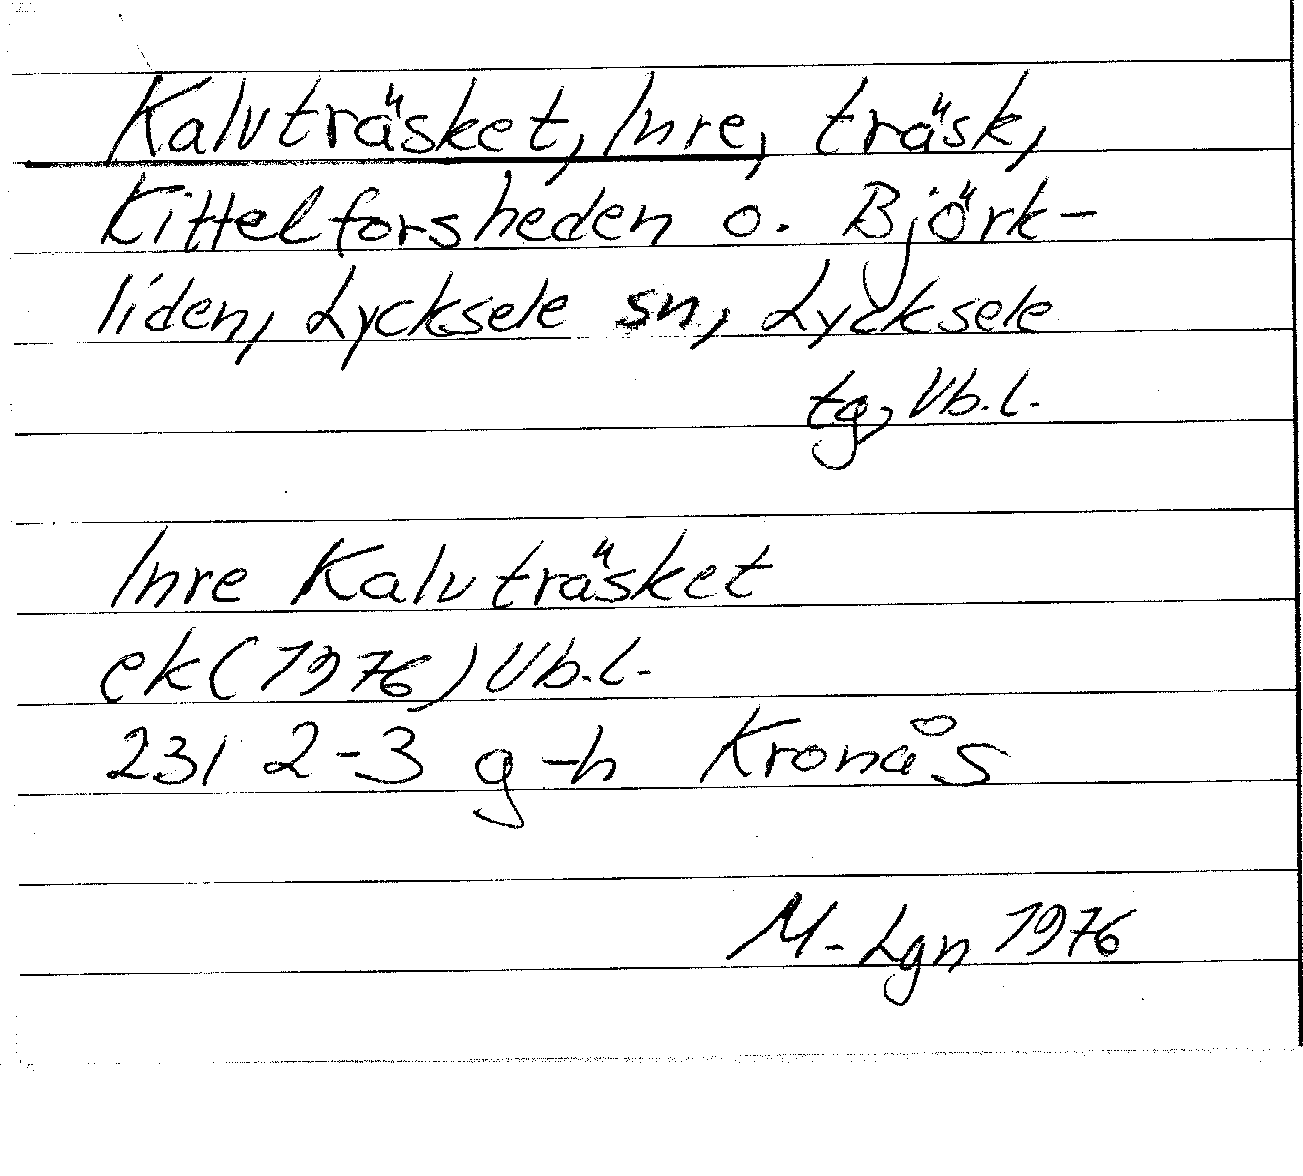 Kalvträsket, Inre, träsk,
Kittelforsheden o. Björk-
liden, Lycksele sn, Lycksele
tg, Vb.l.
Inre Kalvträsket
ek (1976) Vb.l.
23I 2-3 g-h Kronås
M-Lgn 1976